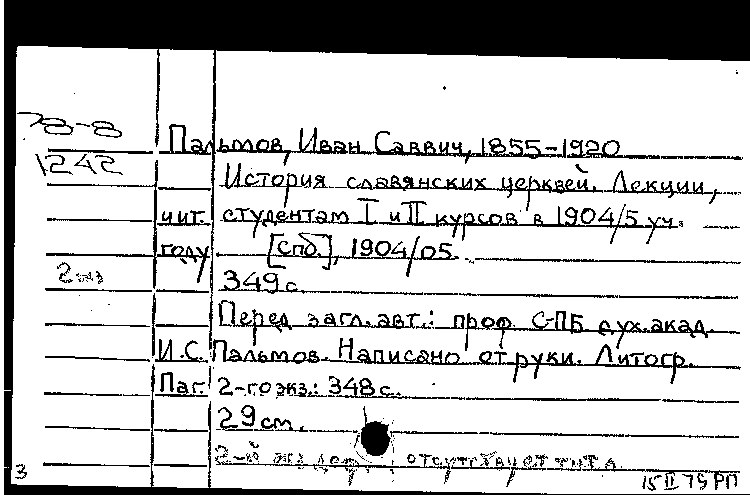 78-8
1242
2 экз
Пальмов, Иван Саввич, 1855-1920
История славянских церквей. Лекции,
чит. студентам I и II курсов в 1904/5 уч.
году [Спб.], 1904/05.
349 с.
Перед загл. авт.: проф. С-ПБ дух. акад.
И.С. Пальмов. Написано от руки. Литогр.
Паг. 2-го экз.: 348 с.
29 см.
2-й экз деф.: отсутствует тит. л.
3
15 II 79 РП